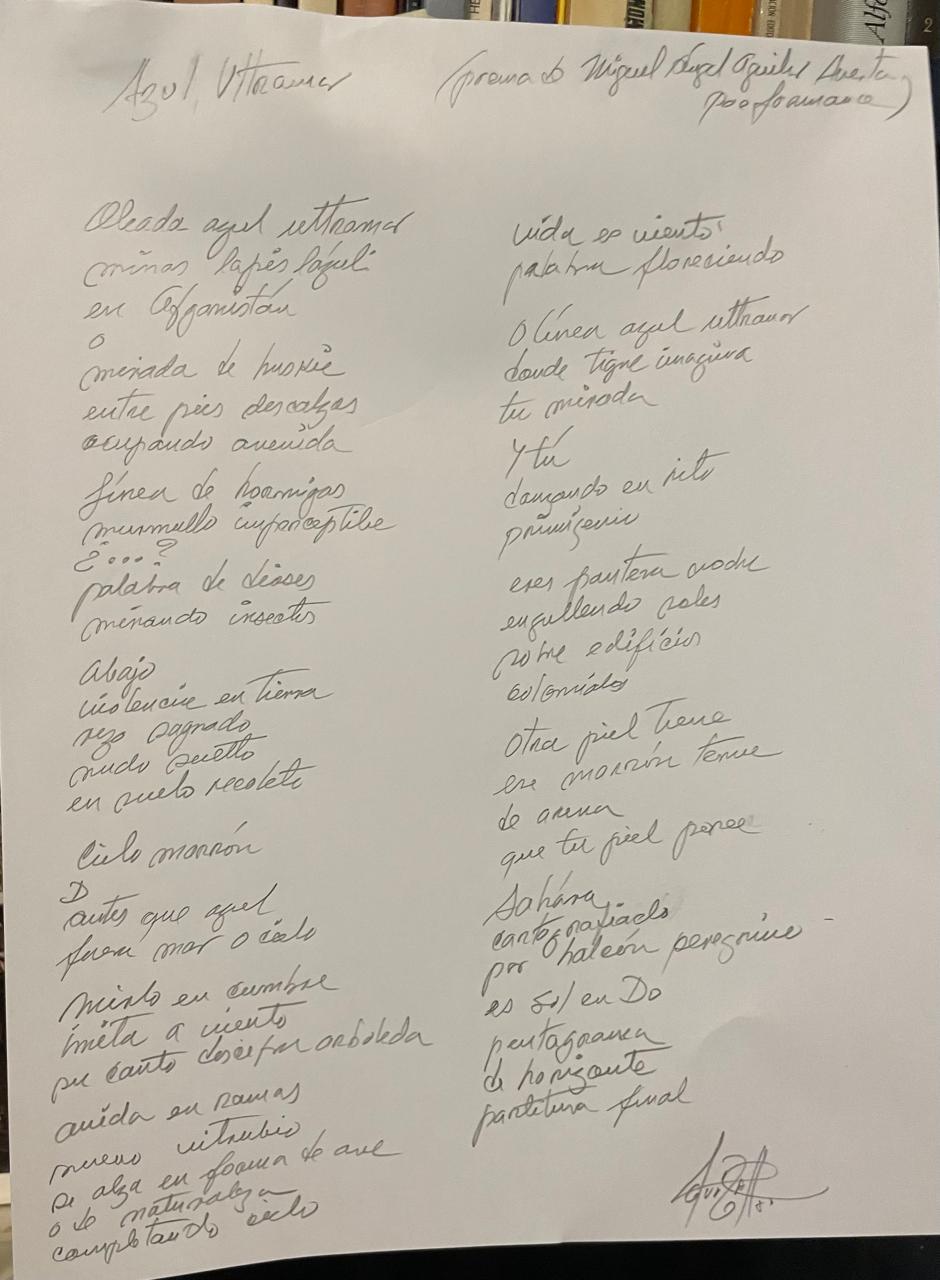 Azul Ultramar
(poema de Miguel Ángel Aguilar Huerta,
Performance)
Oleada azul ultramar
minas lapis lázuli
en Afganistán
o
mirada de huskie
entre pies descalzas
ocupando avenida
línea de hormigas
murmullo imperceptible
¿...?
palabra de dioses
mirando insectos
Abajo
violencia en tierra
rezo sagrado
nudo suelto
en suelo recoleto
Cielo marrón
antes que azul
fuera mar o cielo
Mirlo en cumbre
imita a viento
su canto descifra arboleda
anida en ramas
nuevo vitrubio
se alza en forma de ave
o de naturaleza
completando ciclo
vida es viento
palabra floreciendo
O línea azul ultramar
donde tigre imagina
tu mirada
Y tú
danzando en rito
primigenio
eres pantera noche
engullendo soles
sobre edificios
coloniales
Otra piel tiene
ese marrón tenue
de arena
que tu piel posee
Sahára
cartografiado
por halcón peregrino
es Sol en Do
pentagrama
de horizonte
partitura final